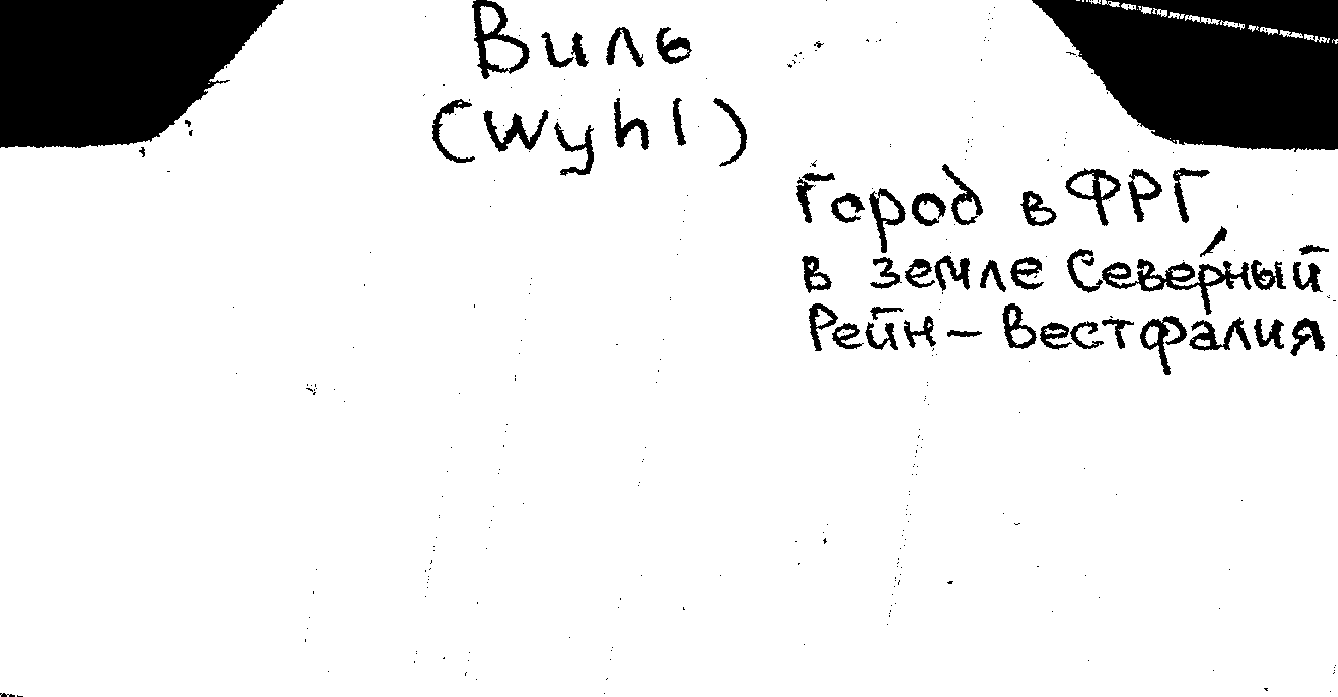 Виль
(Wyhl)
Город в ФРГ
в земле Северный
Рейн – Вестфалия